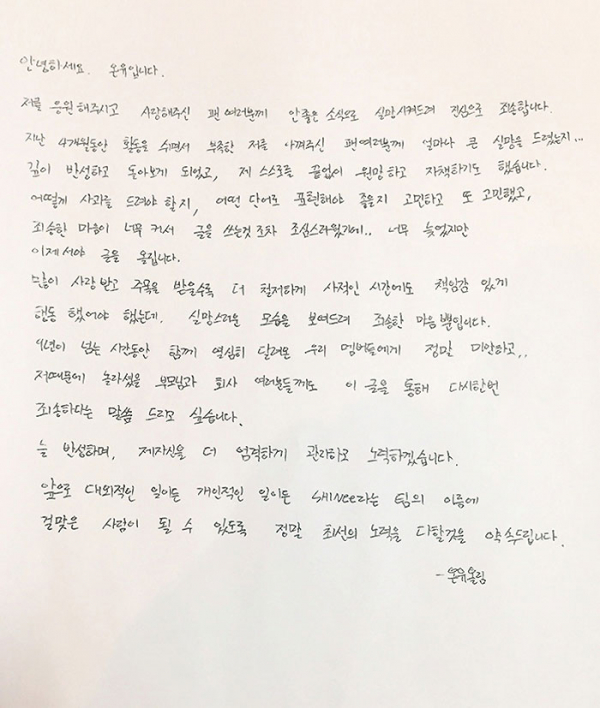 안녕하세요. 온유입니다.
저를 응원해주시고 사랑해주신 팬 여러분께 안좋은 소식으로 실망시켜드려 진심으로 죄송합니다.
지난 4개월동안 활동을 쉬면서 부족한 저를 아껴주신 팬여러분께 얼마나 큰 실망을 드렸는지...
깊이 반성하고 돌아보게 되었고, 제 스스로를 끝없이 원망하고 자책하기도 했습니다.
어떻게 사과를 드려야 할지, 어떤 단어로 표현해야 좋을지 고민하고 또 고민했고,
죄송한 마음이 너무 커서 글을 쓰는것 조차 조심스러웠기에.. 너무 늦었지만
이제서야 글을 올립니다.
많이 사랑받고 주목을 받을수록 더 철저하게 사적인 시간에도 책임감 있게
행동 했어야 했는데. 실망스러운 모습을 보여드려 죄송한 마음뿐입니다.
9년이 넘는 시간동안 함께 열심히 달려온 우리 멤버들에게 정말 미안하고..
저때문에 놀라셨을 부모님과 회사 여러분들께도 이 글을 통해 다시한번
죄송하다는 말씀 드리고 싶습니다.
늘 반성하며, 제자신을 더 엄격하게 관리하고 노력하겠습니다.
앞으로 대외적인 일이든 개인적인 일이든 SHINee라는 팀의 이름에
걸맞은 사람이 될 수 있도록 정말 최선의 노력을 다할것을 약속드립니다.
-온유올림